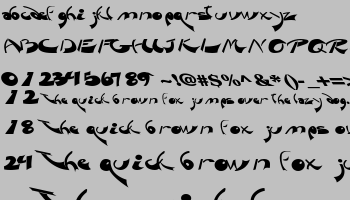 abcdefghijklmnopqrstuvwxyz
ABCDEFGHIJKLMNOPQR
0123456789 ~!@#$%^&*()-_+=>
12 The quick brown fox jumps over the lazy dog.
18 The quick brown fox jumps ov
24 The quick brown fox ju